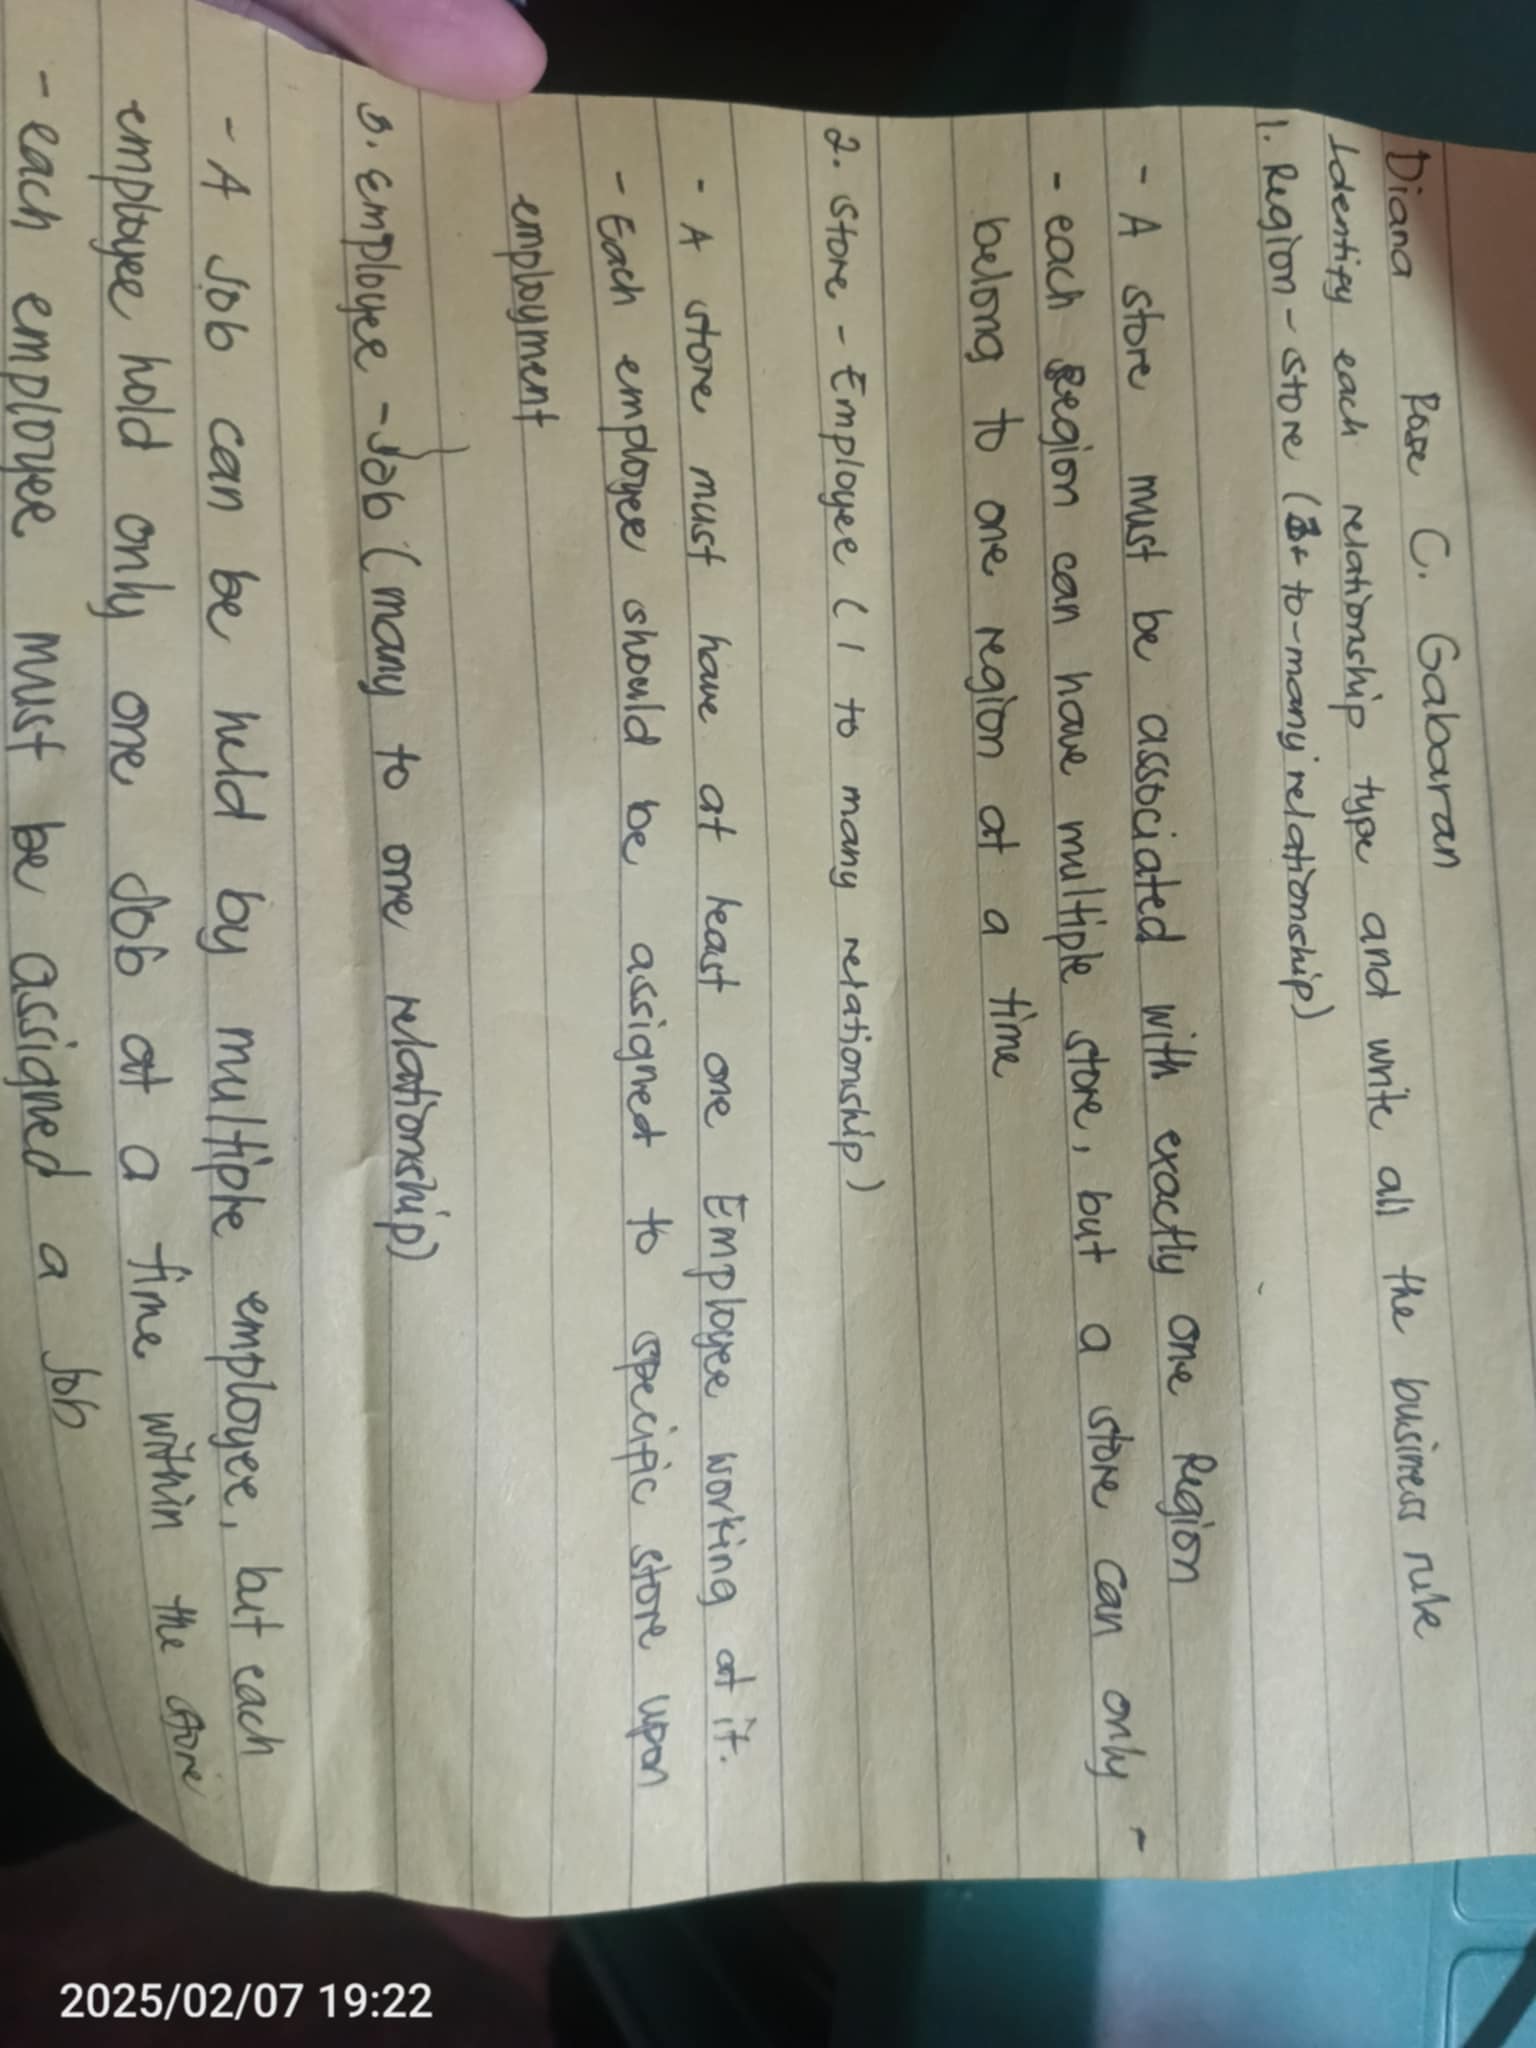 Diana Rose C. Gabaran
Identify each relationship type and write all the business rule
1. Region - Store ( to-many relationship)
- A store must be associated with exactly one Region
- each Region can have multiple store, but a store can only -
belong to one region at a time
2. Store - Employee (1 to many relationship)
- A store must have at least one Employee working at it.
- Each employee should be assigned to specific store upon
employment
3. Employee - Job (many to one relationship)
- A Job can be held by multiple employee, but each
employee hold only one Job at a time within the store
- each employee must be assigned a Job
2025/02/07 19:22